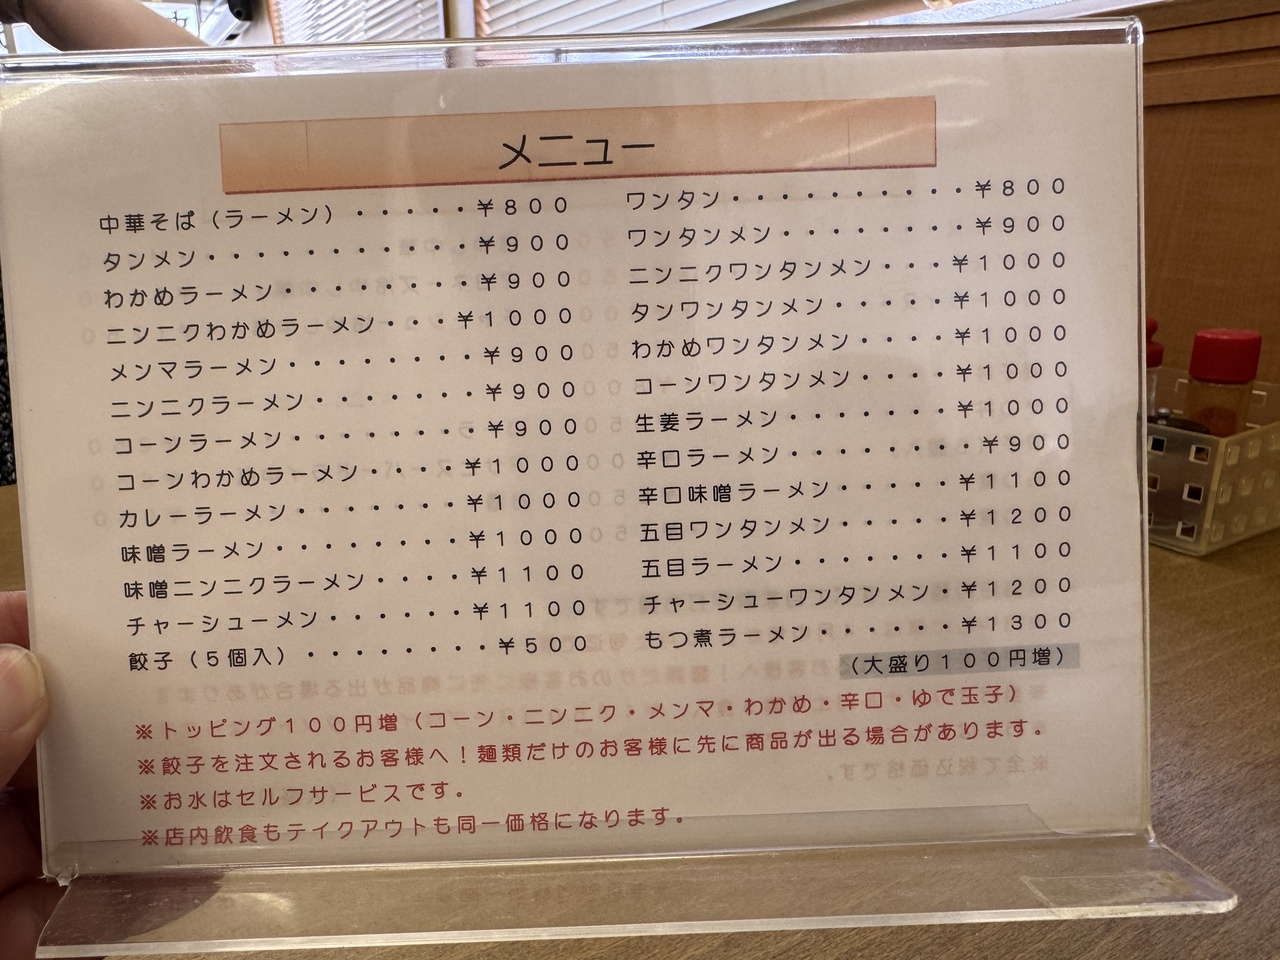 メニュー
中華そば（ラーメン）・・・・・￥８００
タンメン・・・・・・・・・・・￥９００
わかめラーメン・・・・・・・・￥９００
ニンニクわかめラーメン・・・￥１０００
メンマラーメン・・・・・・・・￥９００
ニンニクラーメン・・・・・・・￥９００
コーンラーメン・・・・・・・・￥９００
コーンわかめラーメン・・・・￥１０００
カレーラーメン・・・・・・・￥１０００
味噌ラーメン・・・・・・・・￥１０００
味噌ニンニクラーメン・・・・￥１１００
チャーシューメン・・・・・・￥１１００
餃子（５個入）・・・・・・・・￥５００
ワンタン・・・・・・・・・・￥８００
ワンタンメン・・・・・・・・￥９００
ニンニクワンタンメン・・・￥１０００
タンワンタンメン・・・・・￥１０００
わかめワンタンメン・・・・￥１０００
コーンワンタンメン・・・・￥１０００
生姜ラーメン・・・・・・・￥１０００
辛口ラーメン・・・・・・・・￥９００
辛口味噌ラーメン・・・・・￥１１００
五目ワンタンメン・・・・・￥１２００
五目ラーメン・・・・・・・￥１１００
チャーシューワンタンメン・￥１２００
もつ煮ラーメン・・・・・・￥１３００
（大盛り１００円増）
※トッピング１００円増（コーン・ニンニク・メンマ・わかめ・辛口・ゆで玉子）
※餃子を注文されるお客様へ！麺類だけのお客様に先に商品が出る場合があります。
※お水はセルフサービスです。
※店内飲食もテイクアウトも同一価格になります。